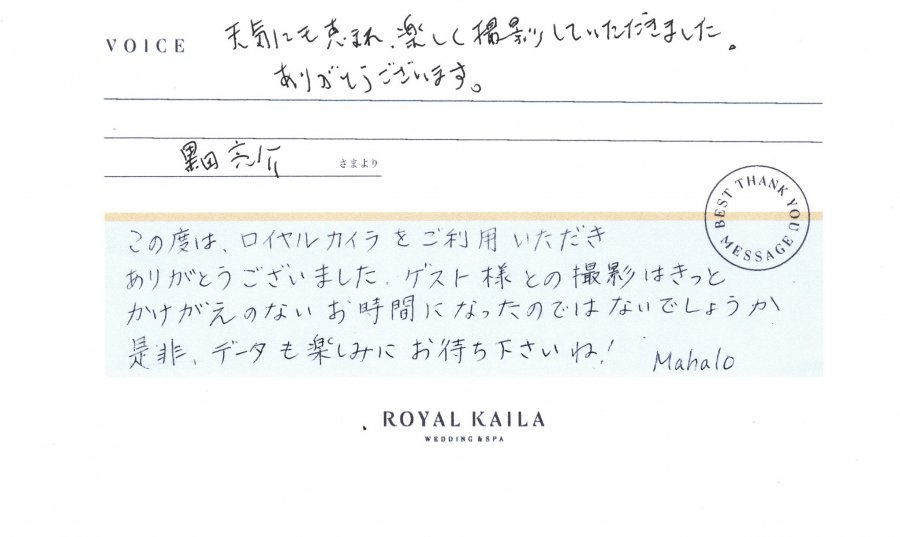 VOICE 天気にも恵まれ、楽しく撮影していただきました。
ありがとうございます。
黒田亮介 さまより
BEST THANK YOU MESSAGE
この度は、ロイヤルカイラをご利用いただき
ありがとうございました。ゲスト様との撮影はきっと
かけがえのないお時間になったのではないでしょうか
是非、データも楽しみにお待ち下さいね！ Mahalo
ROYAL KAILA
WEDDING & SPA